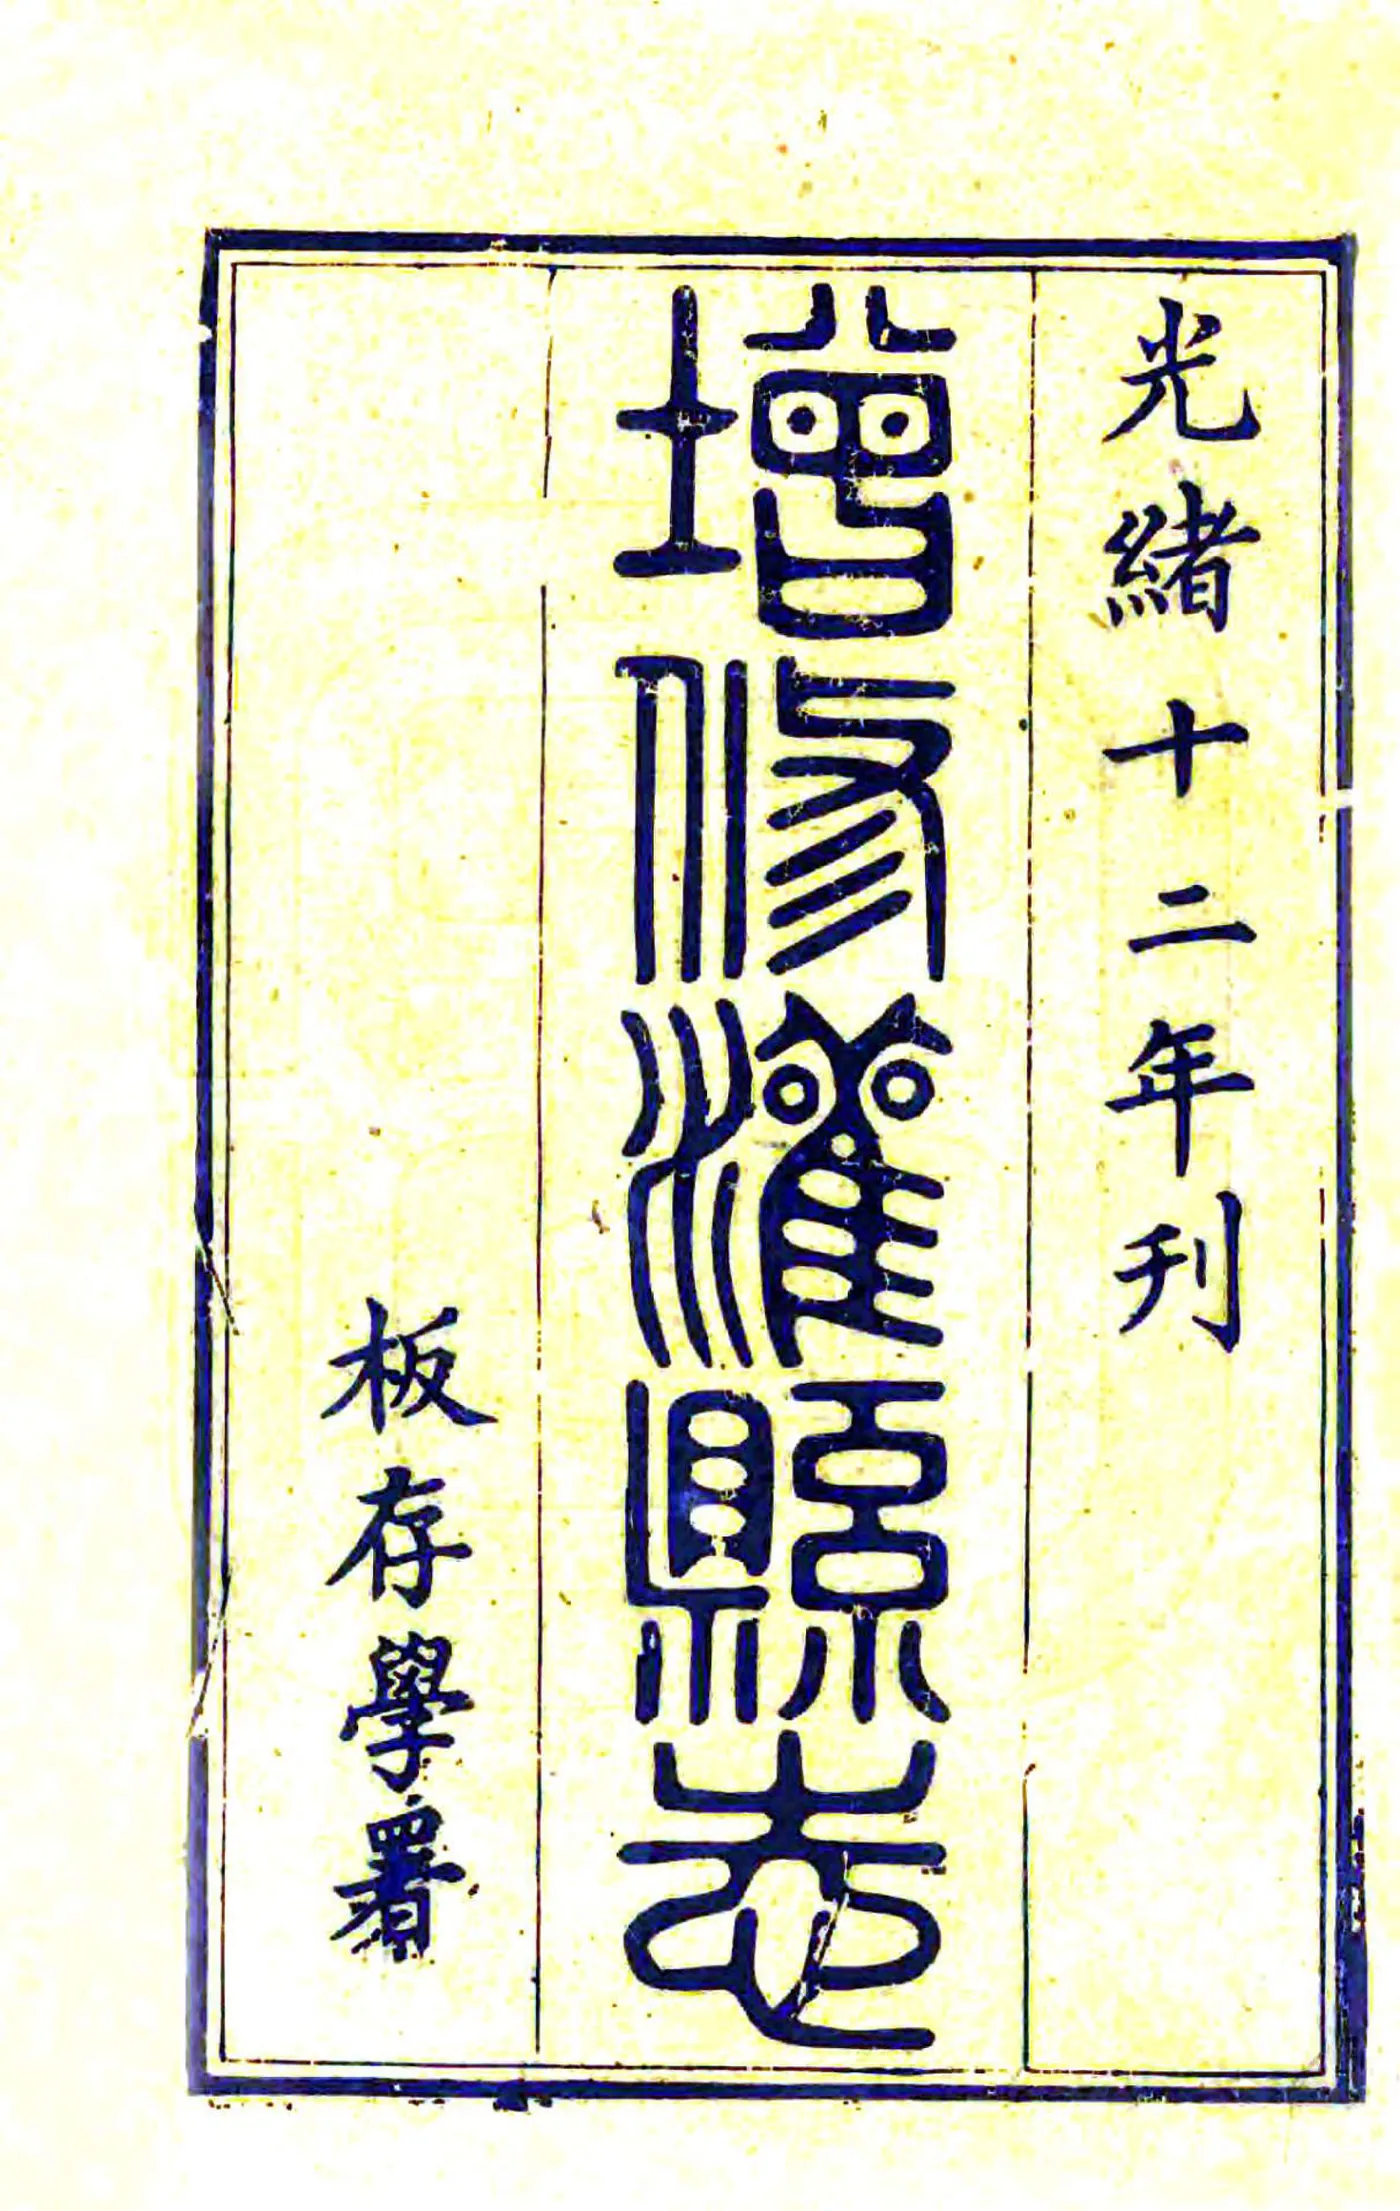 光緒十二年刊
增修灌縣志
板存學署